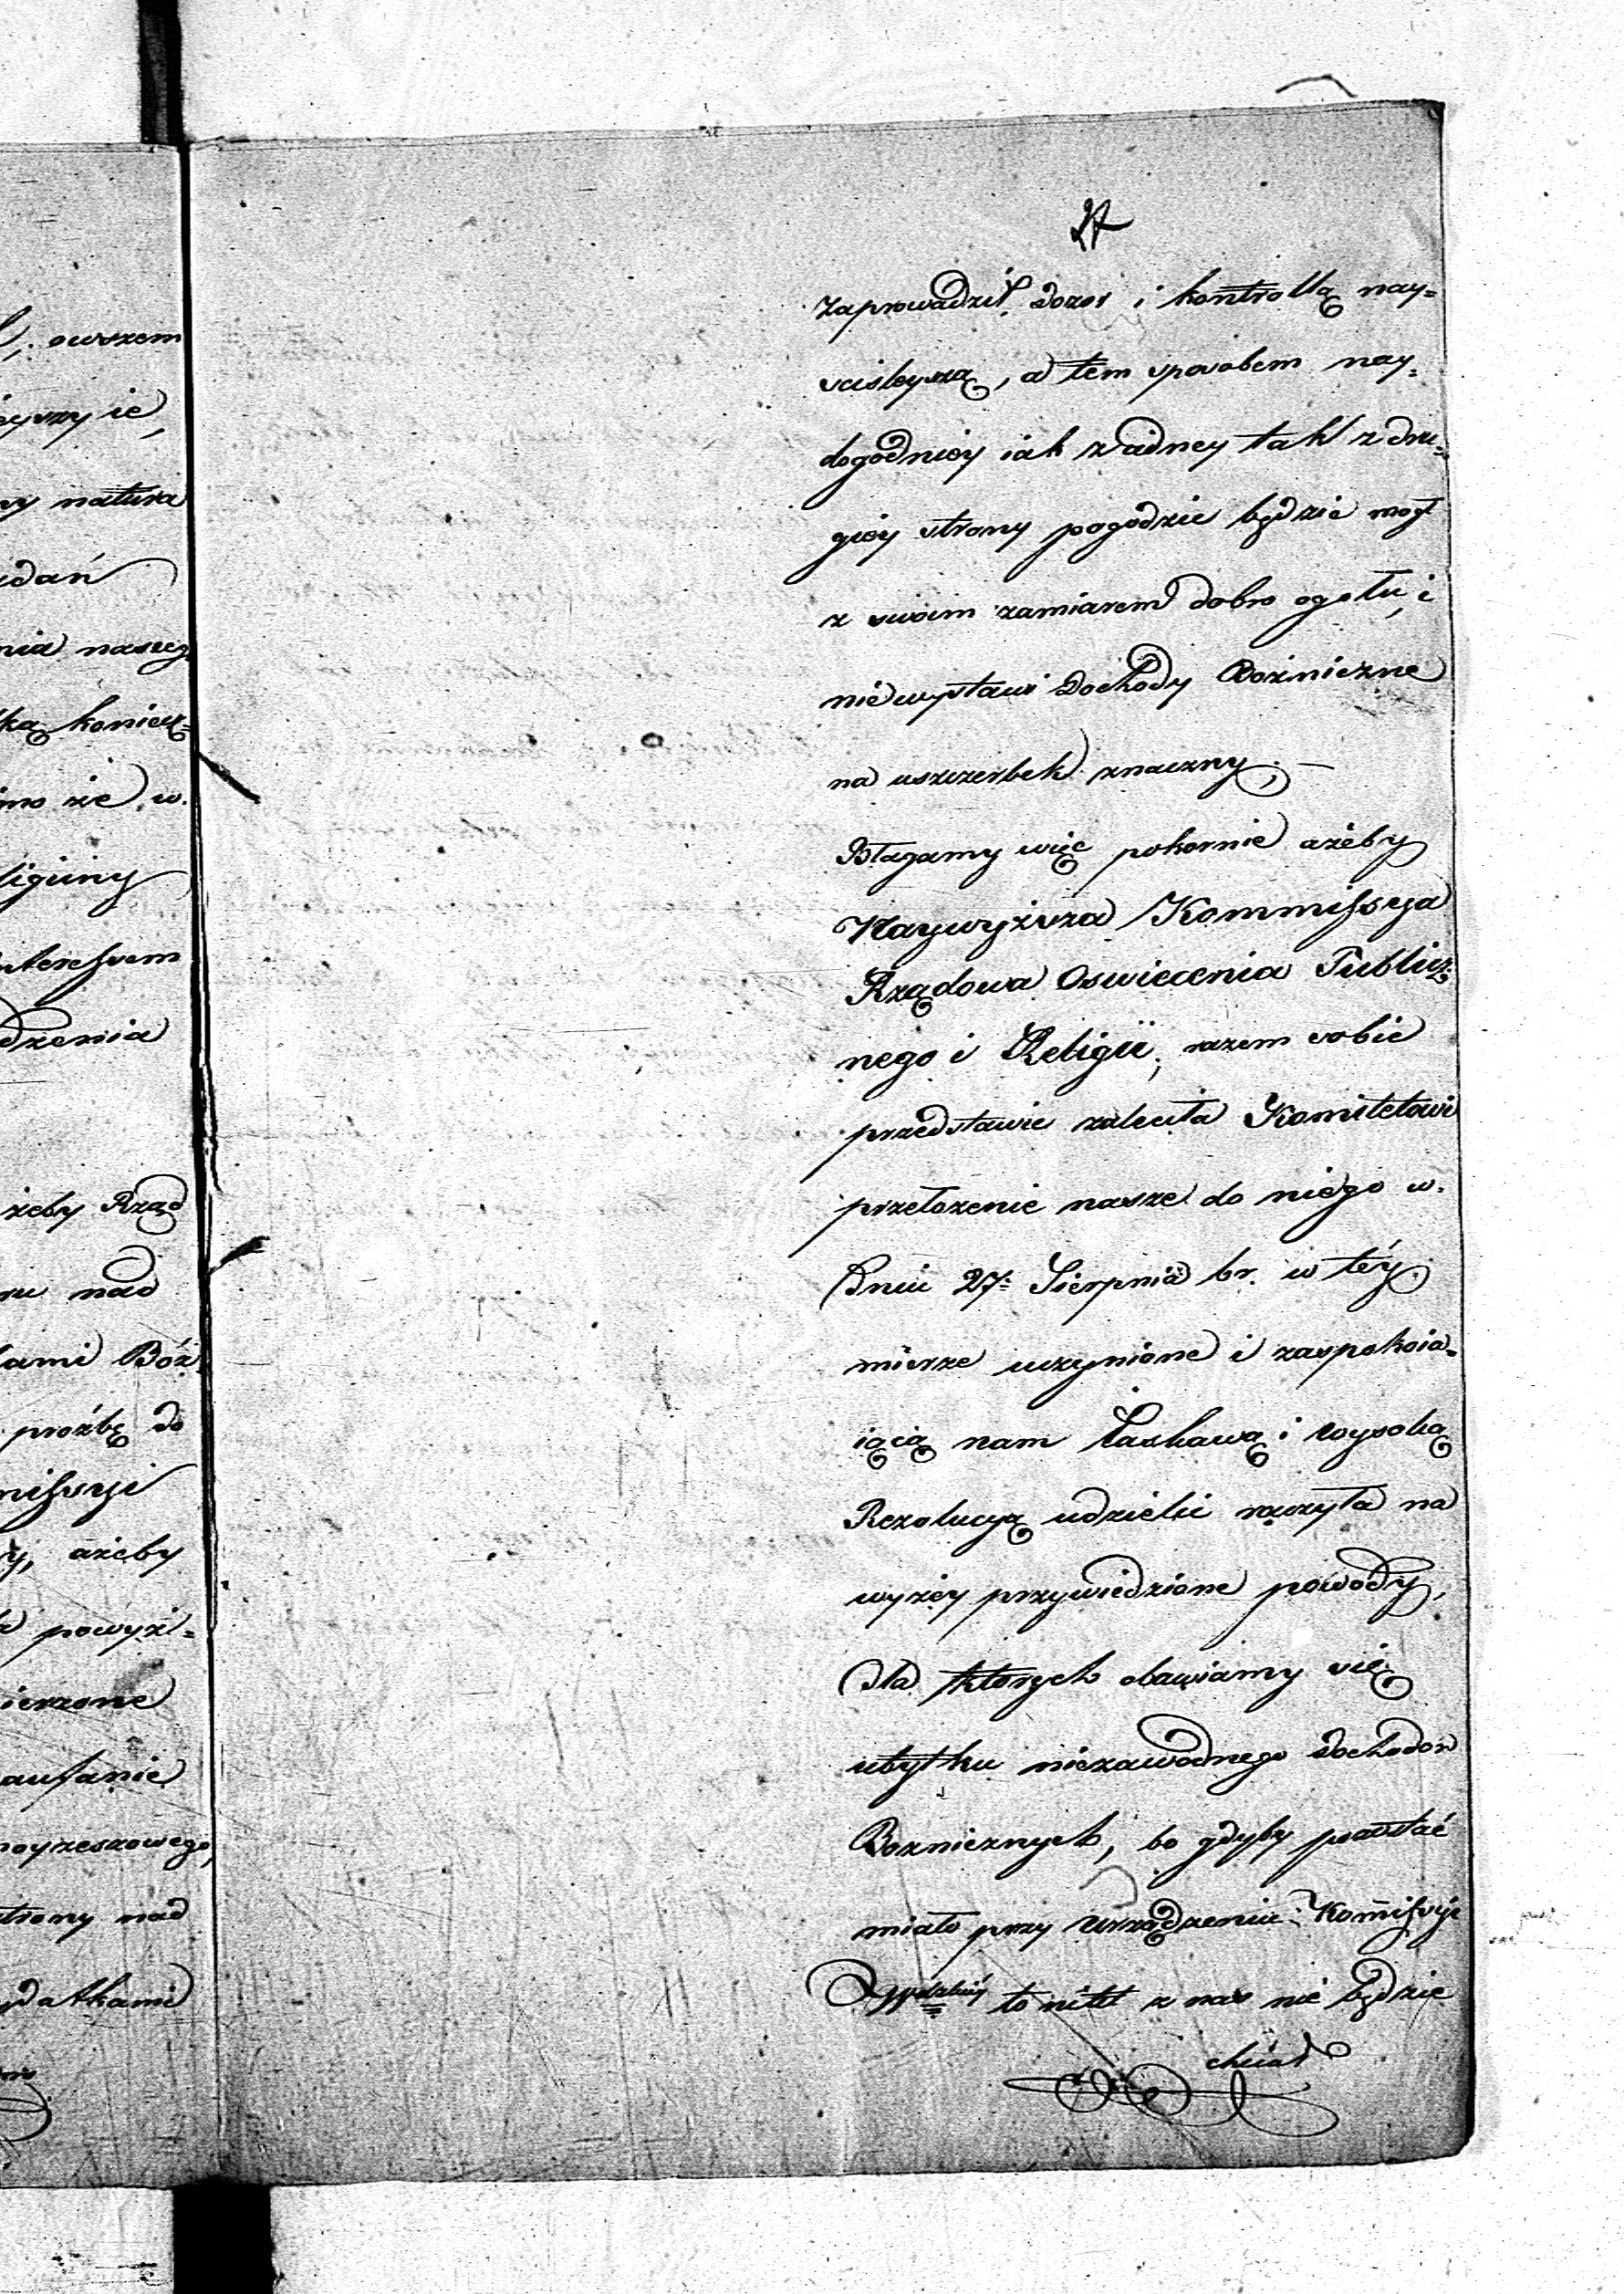 27
zaprowadzić dozor i kontrollą nay=
scisleyszą, a tem sposobem nay=
dogodniey iak z iadney tak z dru=
giey strony pogodzić będzie mogł
z swoim zamiarem dobro ogołu, i
niewystawi Dochody Bożniczne
na uszczerbek znaczny; —
Błagamy więc pokornie ażeby
Naywyższa Kommissya
Rządowa Oswiecenia Publicz=
nego i Religii, razem sobie
przedstawić zaleciła Komitetowi
przełożenie nasze do niego w.
Dniu 27: Sierpnia br. w téy
mierze uczynione i zaspokoia=
iącą nam Łaskawą i wysoką
Rezolucyą udzielić raczyła na
wyżey przywiedzione powody,
Dla ktorych obawiamy się
ubytku niezawodnego dochodow
Bożnicznych, bo gdyby powstać
miało przy Urządzeniu Kom̄issyi
to nikt z nas nie będzie
chciał
ł, owszem
natura
dań
nia naszeg
że w.
interessem
dzenia
żeby Rząd
ru nad
ami Bóż
proźbę do
missyi
y, ażeby
powyż=
ierzone
aufanie
strony nad
ydatkami